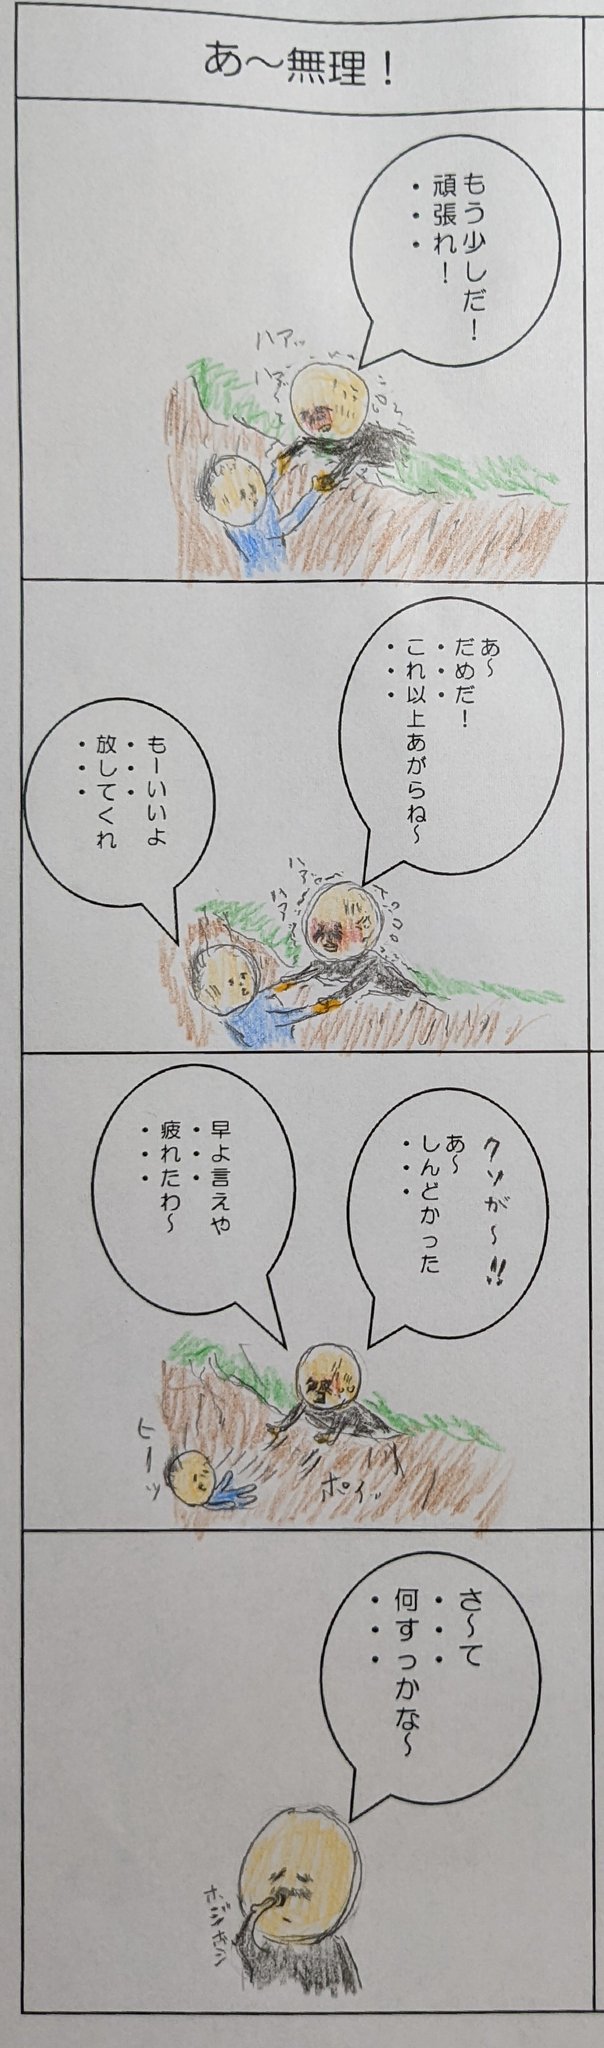 あ〜無理！
もう少しだ！
・・・
頑張れ！
ハアッ
ハアッ
あ〜
だめだ！
・・・
これ以上あがらね〜
・・・
もーいいよ
・・・
放してくれ
・・・
ハアッ
ハアッ
クソが〜!!
あ〜
しんどかった
・・・
早よ言えや
・・・
疲れたわ〜
・・・
ヒーッ
ポイッ
さ〜て
・・・
何すっかな〜
・・・
ホジホジ